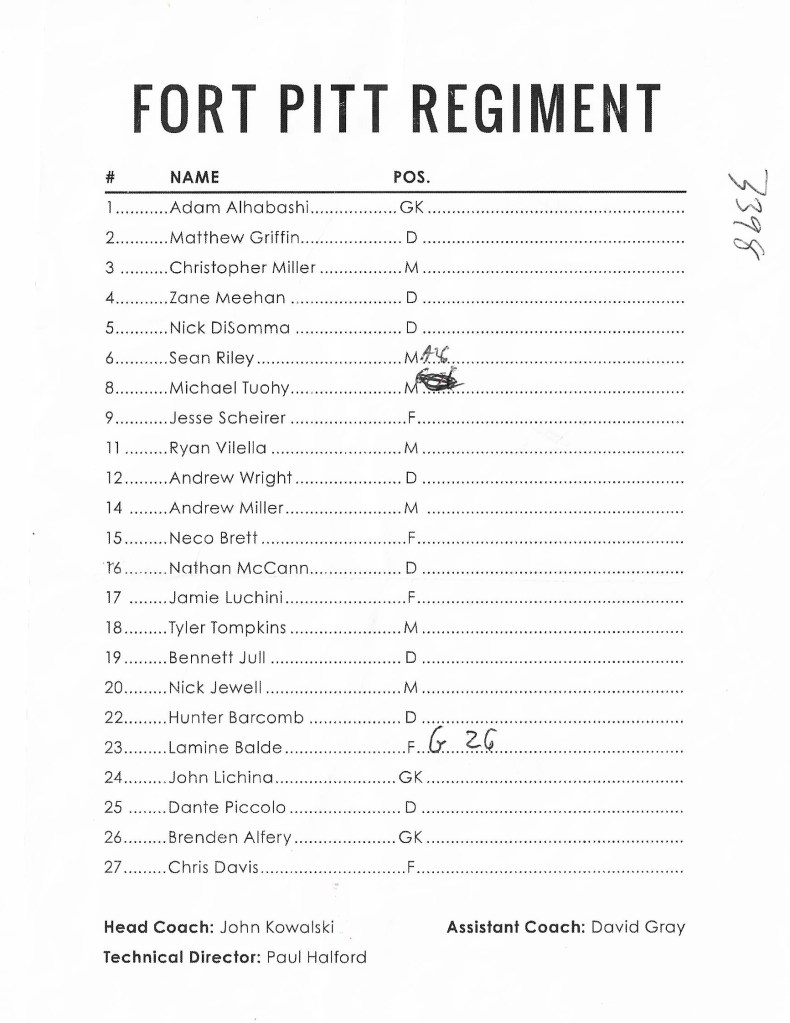 FORT PITT REGIMENT
# NAME POS.
1...........Adam Alhabashi..................GK......................................................
2...........Matthew Griffin..................... D ......................................................
3 ..........Christopher Miller .................M ......................................................
4...........Zane Meehan ....................... D ......................................................
5...........Nick DiSomma ...................... D ......................................................
6...........Sean Riley..............................M A26
8...........Michael Tuohy.......................M
9...........Jesse Scheirer .........................F.......................................................
11 .........Ryan Vilella ...........................M ......................................................
12.........Andrew Wright...................... D ......................................................
14 ........Andrew Miller........................M ......................................................
15.........Neco Brett ..............................F.......................................................
16.........Nathan McCann................... D ......................................................
17 ........Jamie Luchini.........................F.......................................................
18.........Tyler Tompkins .......................M ......................................................
19.........Bennett Jull ........................... D ......................................................
20.........Nick Jewell ............................M ......................................................
22.........Hunter Barcomb ................... D ......................................................
23.........Lamine Balde.........................F... G 26
24.........John Lichina.........................GK......................................................
25 ........Dante Piccolo ....................... D ......................................................
26.........Brenden Alfery.....................GK......................................................
27.........Chris Davis..............................F.......................................................
Head Coach: John Kowalski Assistant Coach: David Gray
Technical Director: Paul Halford
3398